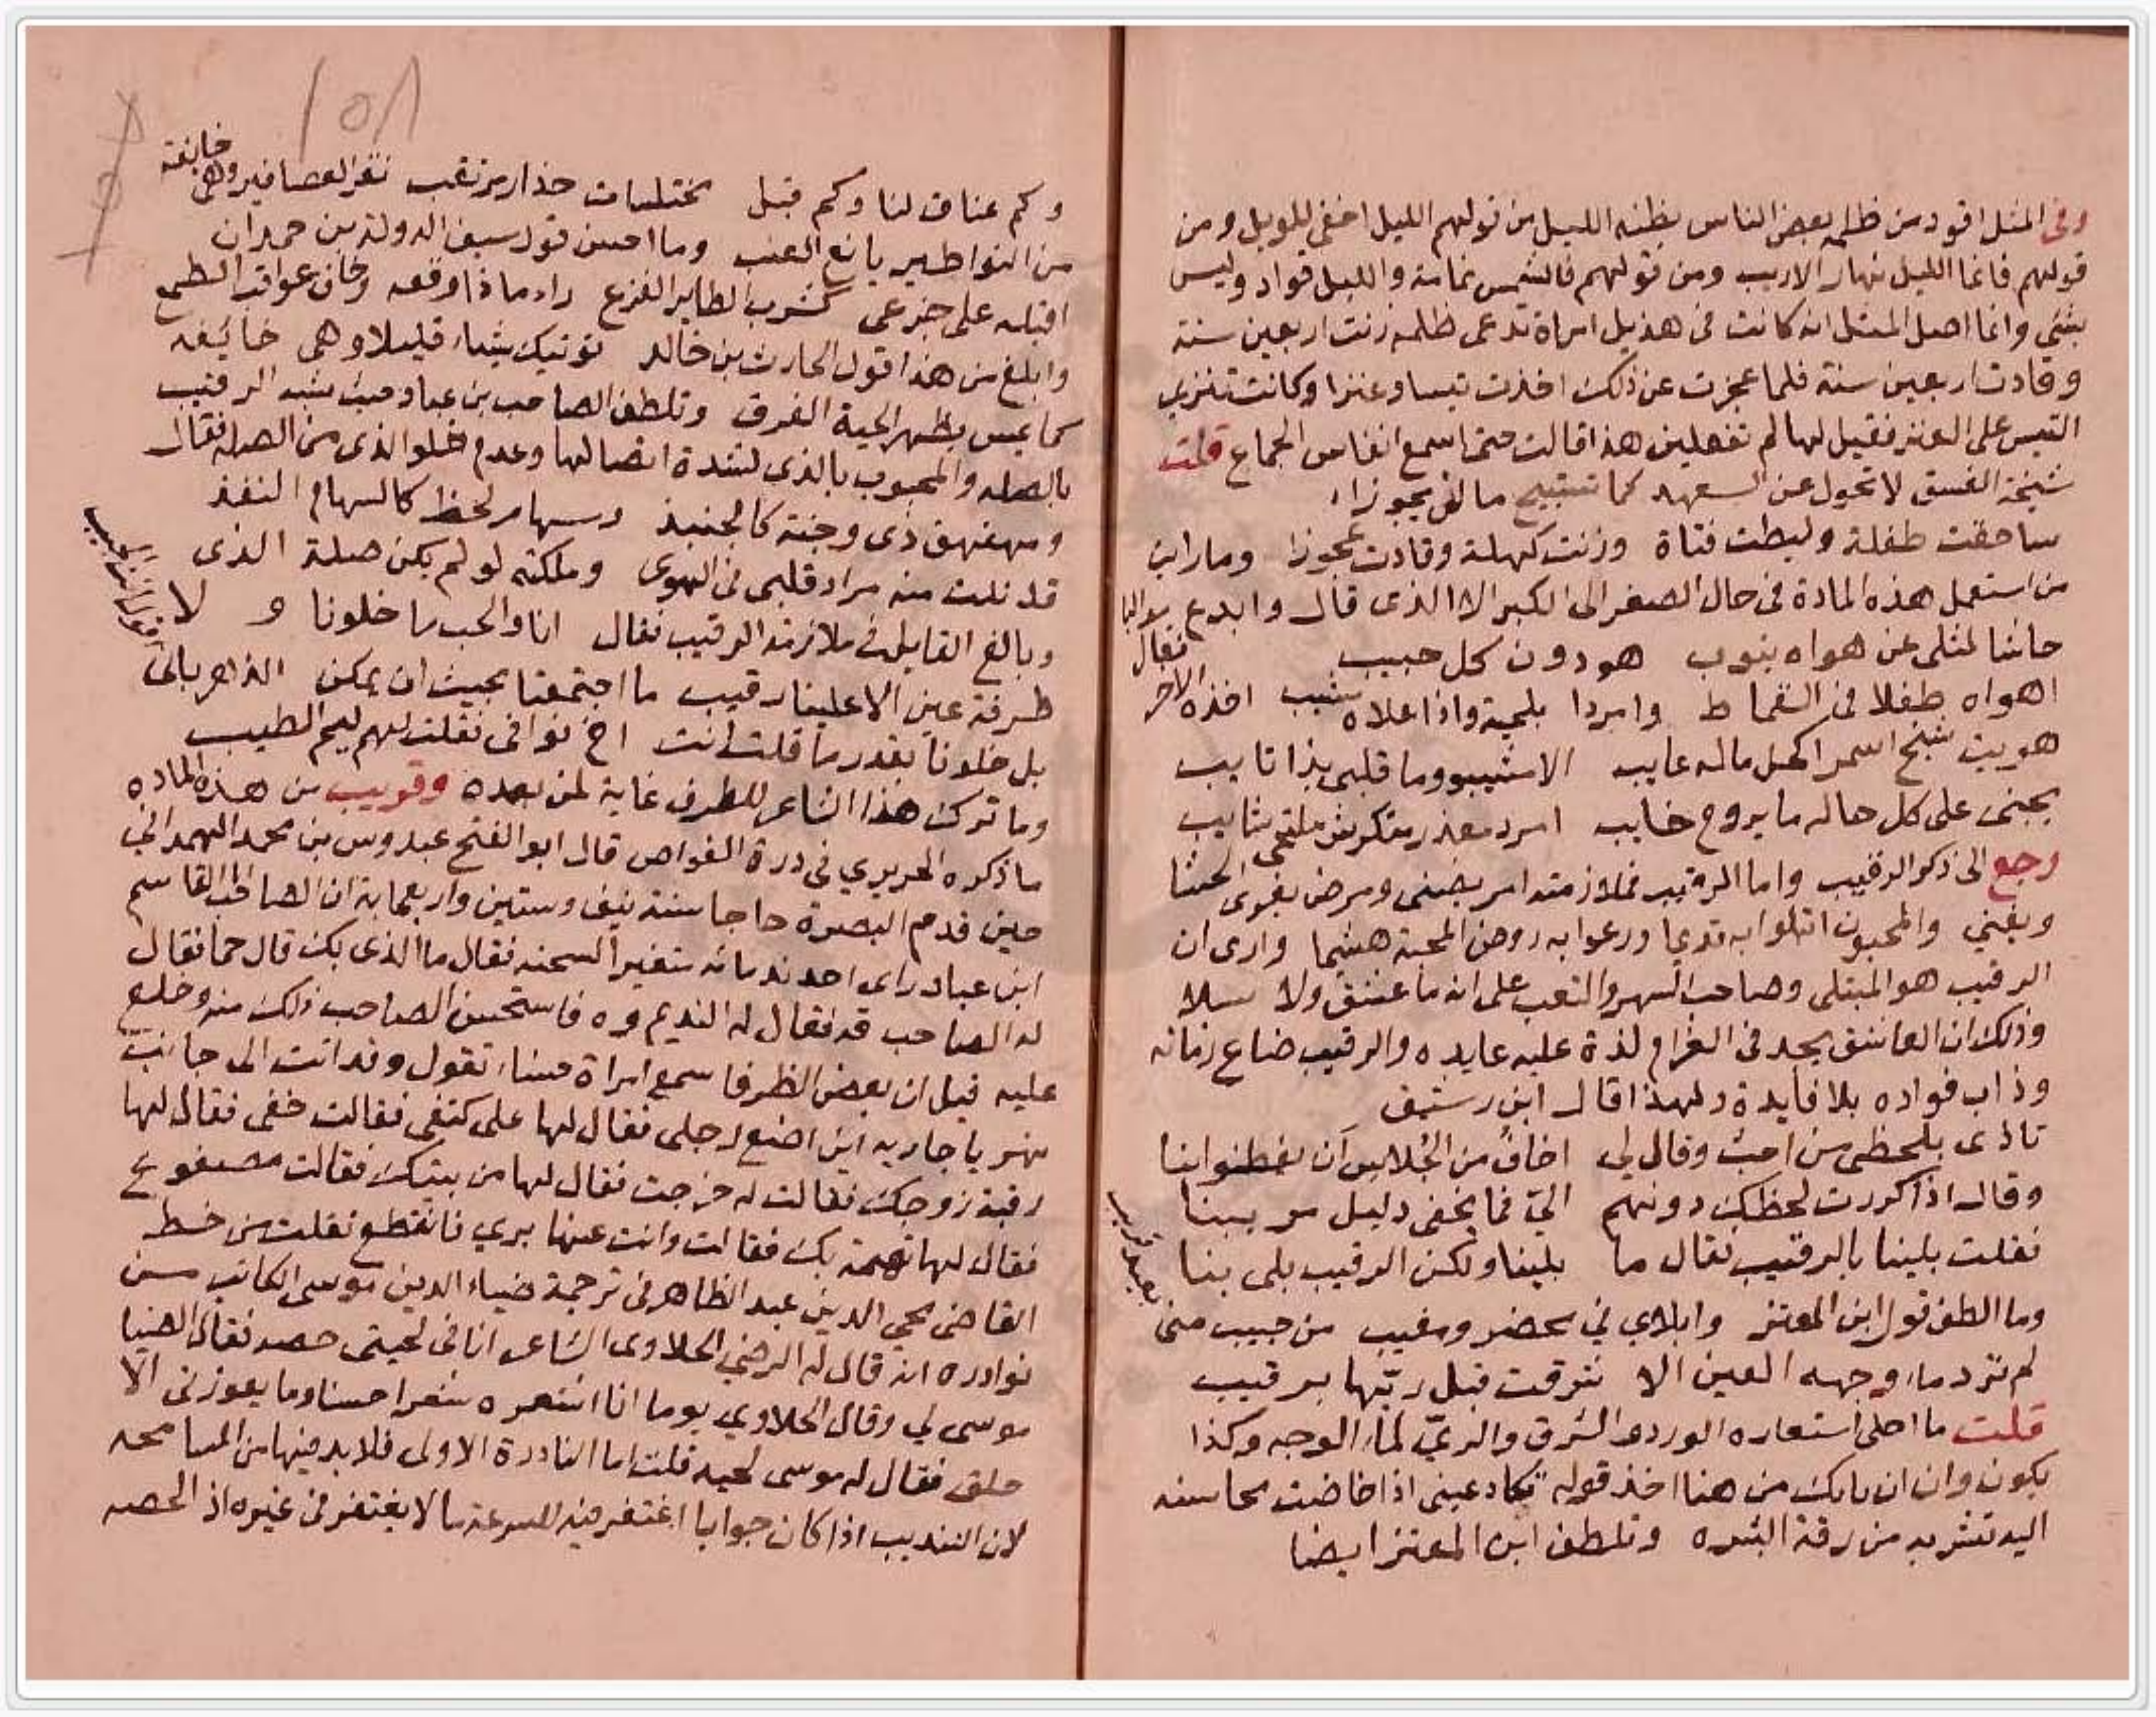 وفى المثل اقود من ظلمه بعض الناس يظنه الليل من قولهم الليل اخفى للويل ومن
قولهم فانما الليل نهار الاريب ومن قولهم فالشمس نمامة والليل قواد وليس
بشئ وانما اصل المثل انه كانت فى هذيل امراة تدعى ظلمه زنت اربعين سنة
وقادت اربعين سنة فلما عجزت عن ذلك اخذت تيسا وعنزا وكانت تنزى
التيس على العنز فقيل لها لم تفعلين هذا قالت حتى اسمع انفاس الجماع قلت
شيخة الفسق لا تحول عن العهد كما تستبيح ما لن يجوزا
ساحقت طفلة وليطت فتاة وزنت كهلة وقادت عجوزا وما راين
من استعمل هذه المادة فى حال الصغر الى الكبر الا الذى قال وابدع
حاشا لمثلى عن هواه يتوب هو دون كل حبيب
فقال
اهواه طفلا فى القماط وامردا بلحية واذا علاه شيب اخذه الاخر
هويت شيخ اسمر اكحل ماله عايب الا شيبو وما قلبى بذا تايب
يجنى على كل حاله ما يروح خايب امرد معذر متكرش ملتحى شايب
رجع الى ذكر الرقيب واما الرقيب فملازمته امر يضنى ومرض يغوى الحشا
ويفني والمحبون ابتلوا به قديما ورعوا به روض المحبة هشيما وارى ان
الرقيب هو المبتلى وصاحب السهر والتعب على انه ما عشق ولا سلا
وذلك ان العاشق يجد فى الغرام لذة عليه عايده والرقيب ضاع زمانه
وذاب فواده بلا فايدة ولهذا قال ابن رشيق
تاذى بلحظى من احب وقال لي اخاف من الجلاس ان يفطنوا بنا
وقال اذا كررت لحظك دونهم الي فما يخفى دليل مريبنا
فقلت بلينا بالرقيب فقال ما بلينا ولكن الرقيب بلى بنا
وما الطف قول ابن المعتز وابلاي في محضر ومغيب من حبيب منى
بعيد قريب
لم ترد ماء وجهه العين الا شرقت قبل ريها برقيب
قلت ما احلى استعاره الورد والشرق والري لماء الوجه وكذا
يكون وان ان بابك من هنا اخذ قوله تكاد عينى اذا خاضت محاسنه
اليه تشربه من رقة البشره وتلطف ابن المعتز ايضا
١٥٨
وكم عناق لنا وكم قبل مختلسات حذار مرتقب نقر العصافير وهى خايفة
من النواطير يانع العنب وما احسن قول سيف الدولة بن حمدان
اقبله على جزعى كشرب الطاير الفزع راى ماء فاوقعه وخاف عواقب الطمع
وابلغ من هذا قول الحارث بن خالد نوتيك شياء قليلا وهى خايفه
كما يمس بظهر الحية الفرق وتلطف الصاحب بن عباد حيث شبه الرقيب
بالصله والمحبوب بالذى لشدة اتصالها وعدم خلو الذى من الصله فقال
ومهفهف ذى وجنة كالجنبذ وسهام لحظ كالسهام النفذ
قد نلت منه مراد قلبى فى الهوى وملكته لو لم يكن صلة الذى
وبالغ القايل فى ملازمة الرقيب فقال انا والحب ما خلونا ولا
طرفة عين الا علينا رقيب ما اجتمعنا بحيث ان يمكن الدهر بانى
بل خلونا بقدر ما قلت انت اخ فوافى فقلت لهم ليم الطيب
وما ترك هذا الشاعر للطرف غاية لمن بعده وقريب من هذه الماده
ما ذكره الحريري فى درة الغواص قال ابو الفتح عبدوس بن محمد الهمدانى
حين قدم البصرة حاجا سنة نيف وستين واربعماية ان الصاحب ابا القاسم
ابن عباد راى احد ندمائه متغير السحنه فقال ما الذى بك قال حما فقال
له الصاحب قه فقال له النديم وه فاستحسن الصاحب ذلك منه وخلع
عليه قيل ان بعض الظرفا سمع امراة حسناء تقول وقد اتت الى جانب
نهر يا جاريه اين اضع رجلى فقال لها على كتفى فقالت خفى فقال لها
رقبة زوجك فقالت له خرجت فقال لها من بيتك فقالت مصفوع
فقال لها تهمة بك فقالت وانت عنها بري فانقطع نقلت من خط
القاضى محيي الدين عبد الظاهر فى ترجمة ضياء الدين موسى الكاتب من
نوادره انه قال له الرضي الحلاوى الشاعر انا فى لحيتى حصه فقال الضيا
موسى لي وقال الحلاوي يوما انا اشعر ه شعرا حسنا وما يعوزنى الا
حلق فقال له موسى لحيه قلت اما النادرة الاولى فلا بد فيها من المسامحه
لان التنديب اذا كان جوابا اغتفر فيه للسرعة ما لا يغتفر فى غيره اذ الحصه